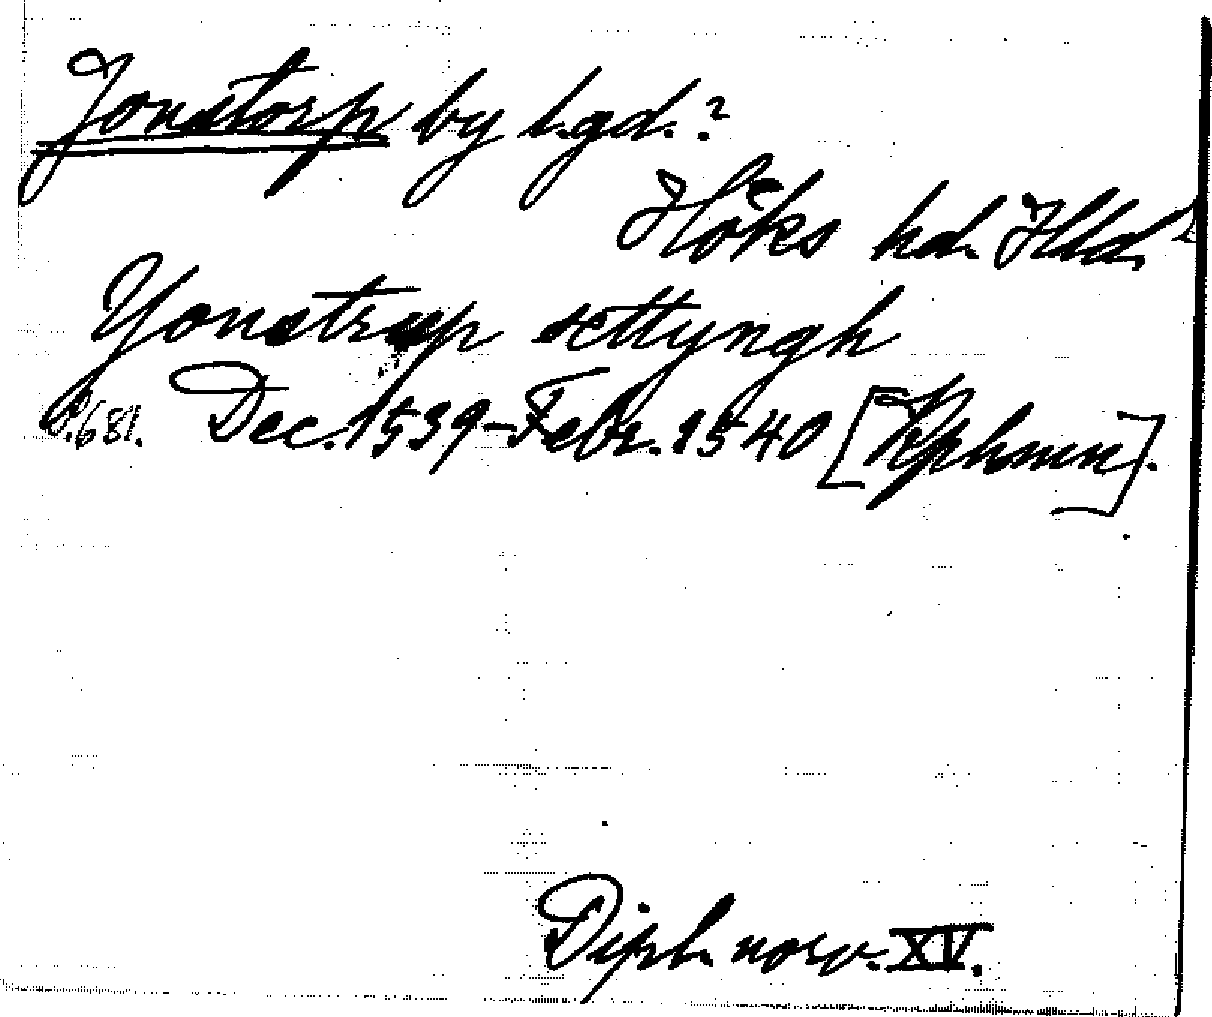 Jonstorp by l. gd. ?
Höks hd. Hld.
Yonstrup settyngh
S. 681. Dec. 1539–Febr. 1540 [Kphmn].
Dipl. norv. XV.